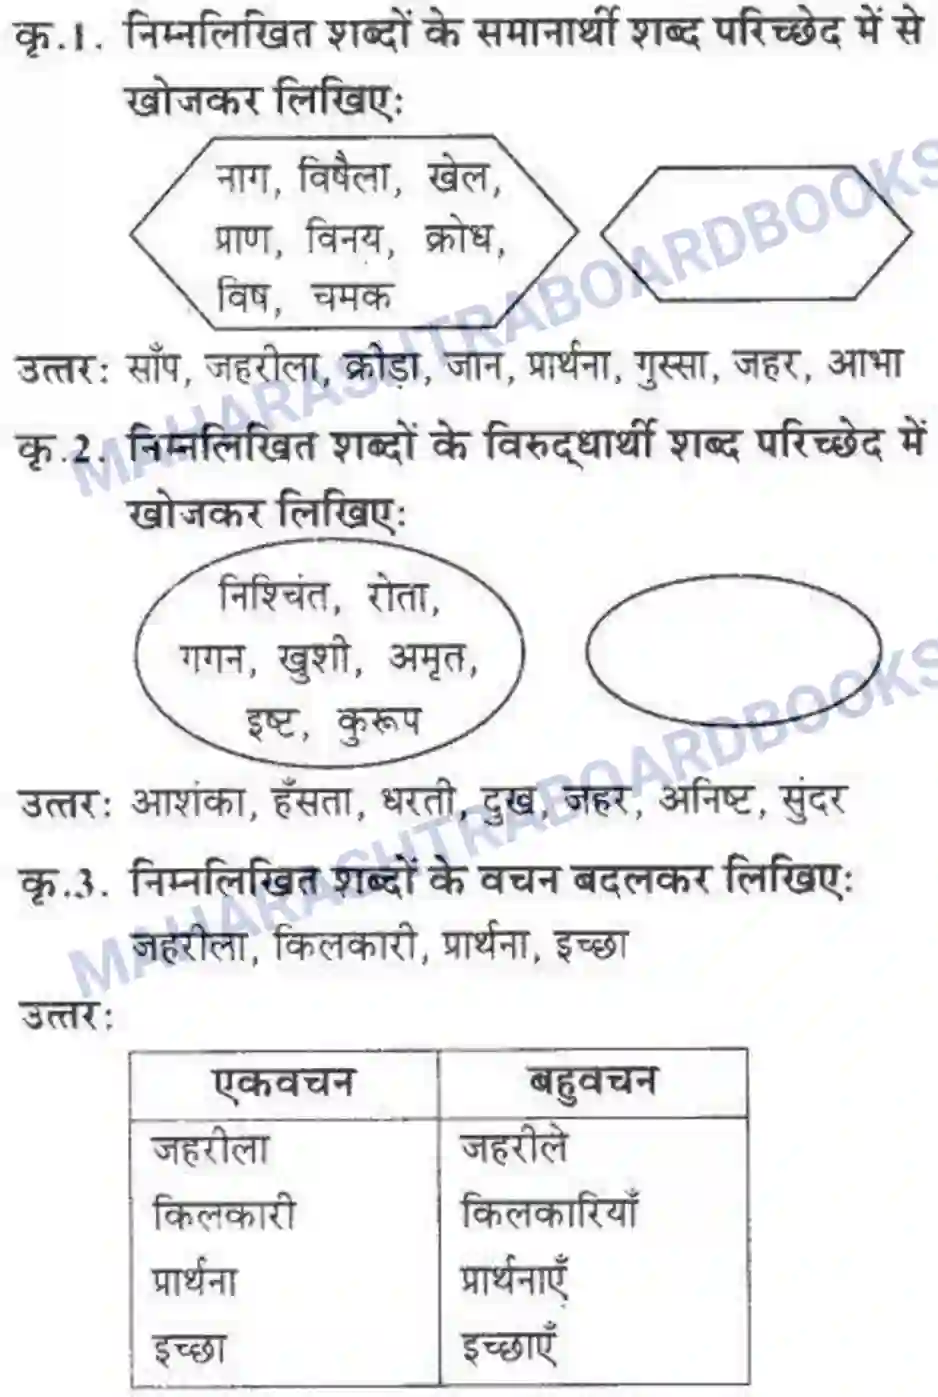 कृ.1. निम्नलिखित शब्दों के समानार्थी शब्द परिच्छेद में से
खोजकर लिखिए:
नाग, विषैला, खेल,
प्राण, विनय, क्रोध,
विष, चमक
उत्तर: साँप, जहरीला, क्रीड़ा, जान, प्रार्थना, गुस्सा, जहर, आभा
कृ.2. निम्नलिखित शब्दों के विरुद्धार्थी शब्द परिच्छेद में
खोजकर लिखिए:
निश्चिंत, रोता,
गगन, खुशी, अमृत,
इष्ट, कुरूप
उत्तर: आशंका, हँसता, धरती, दुख, जहर, अनिष्ट, सुंदर
कृ.3. निम्नलिखित शब्दों के वचन बदलकर लिखिए:
जहरीला, किलकारी, प्रार्थना, इच्छा
उत्तर:
एकवचन बहुवचन
जहरीला जहरीले
किलकारी किलकारियाँ
प्रार्थना प्रार्थनाएँ
इच्छा इच्छाएँ
MAHARASHTRABOARDBOOKS
MAHARASHTRABOARDBOOKS